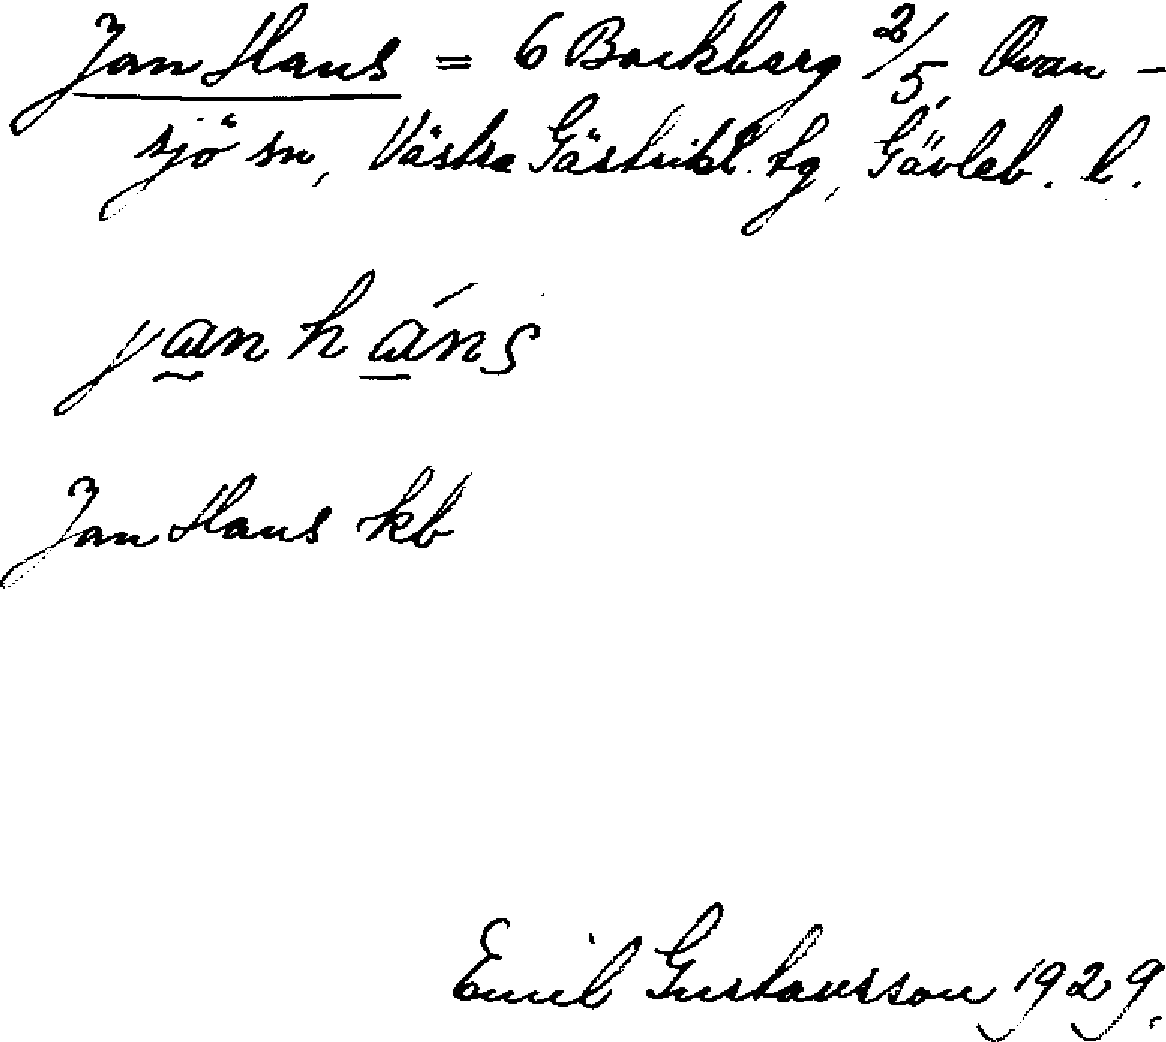 Jan Hans = 6 Backberg 2/5, Ovan-
sjö sn, Västra Gästrikl. tg, Gävleb. l.
jan háns
Jan Hans kb
Emil Gustavsson 1929.